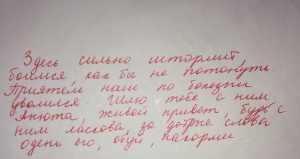 Здесь сильно штормит,
боимся, как бы не потонуть
Приятель наш по болезни
уволился Шлю тебе с ним
Анюта, живой привет, будь с
ним ласкова, за добрые слова
одень его, обуй, накорми